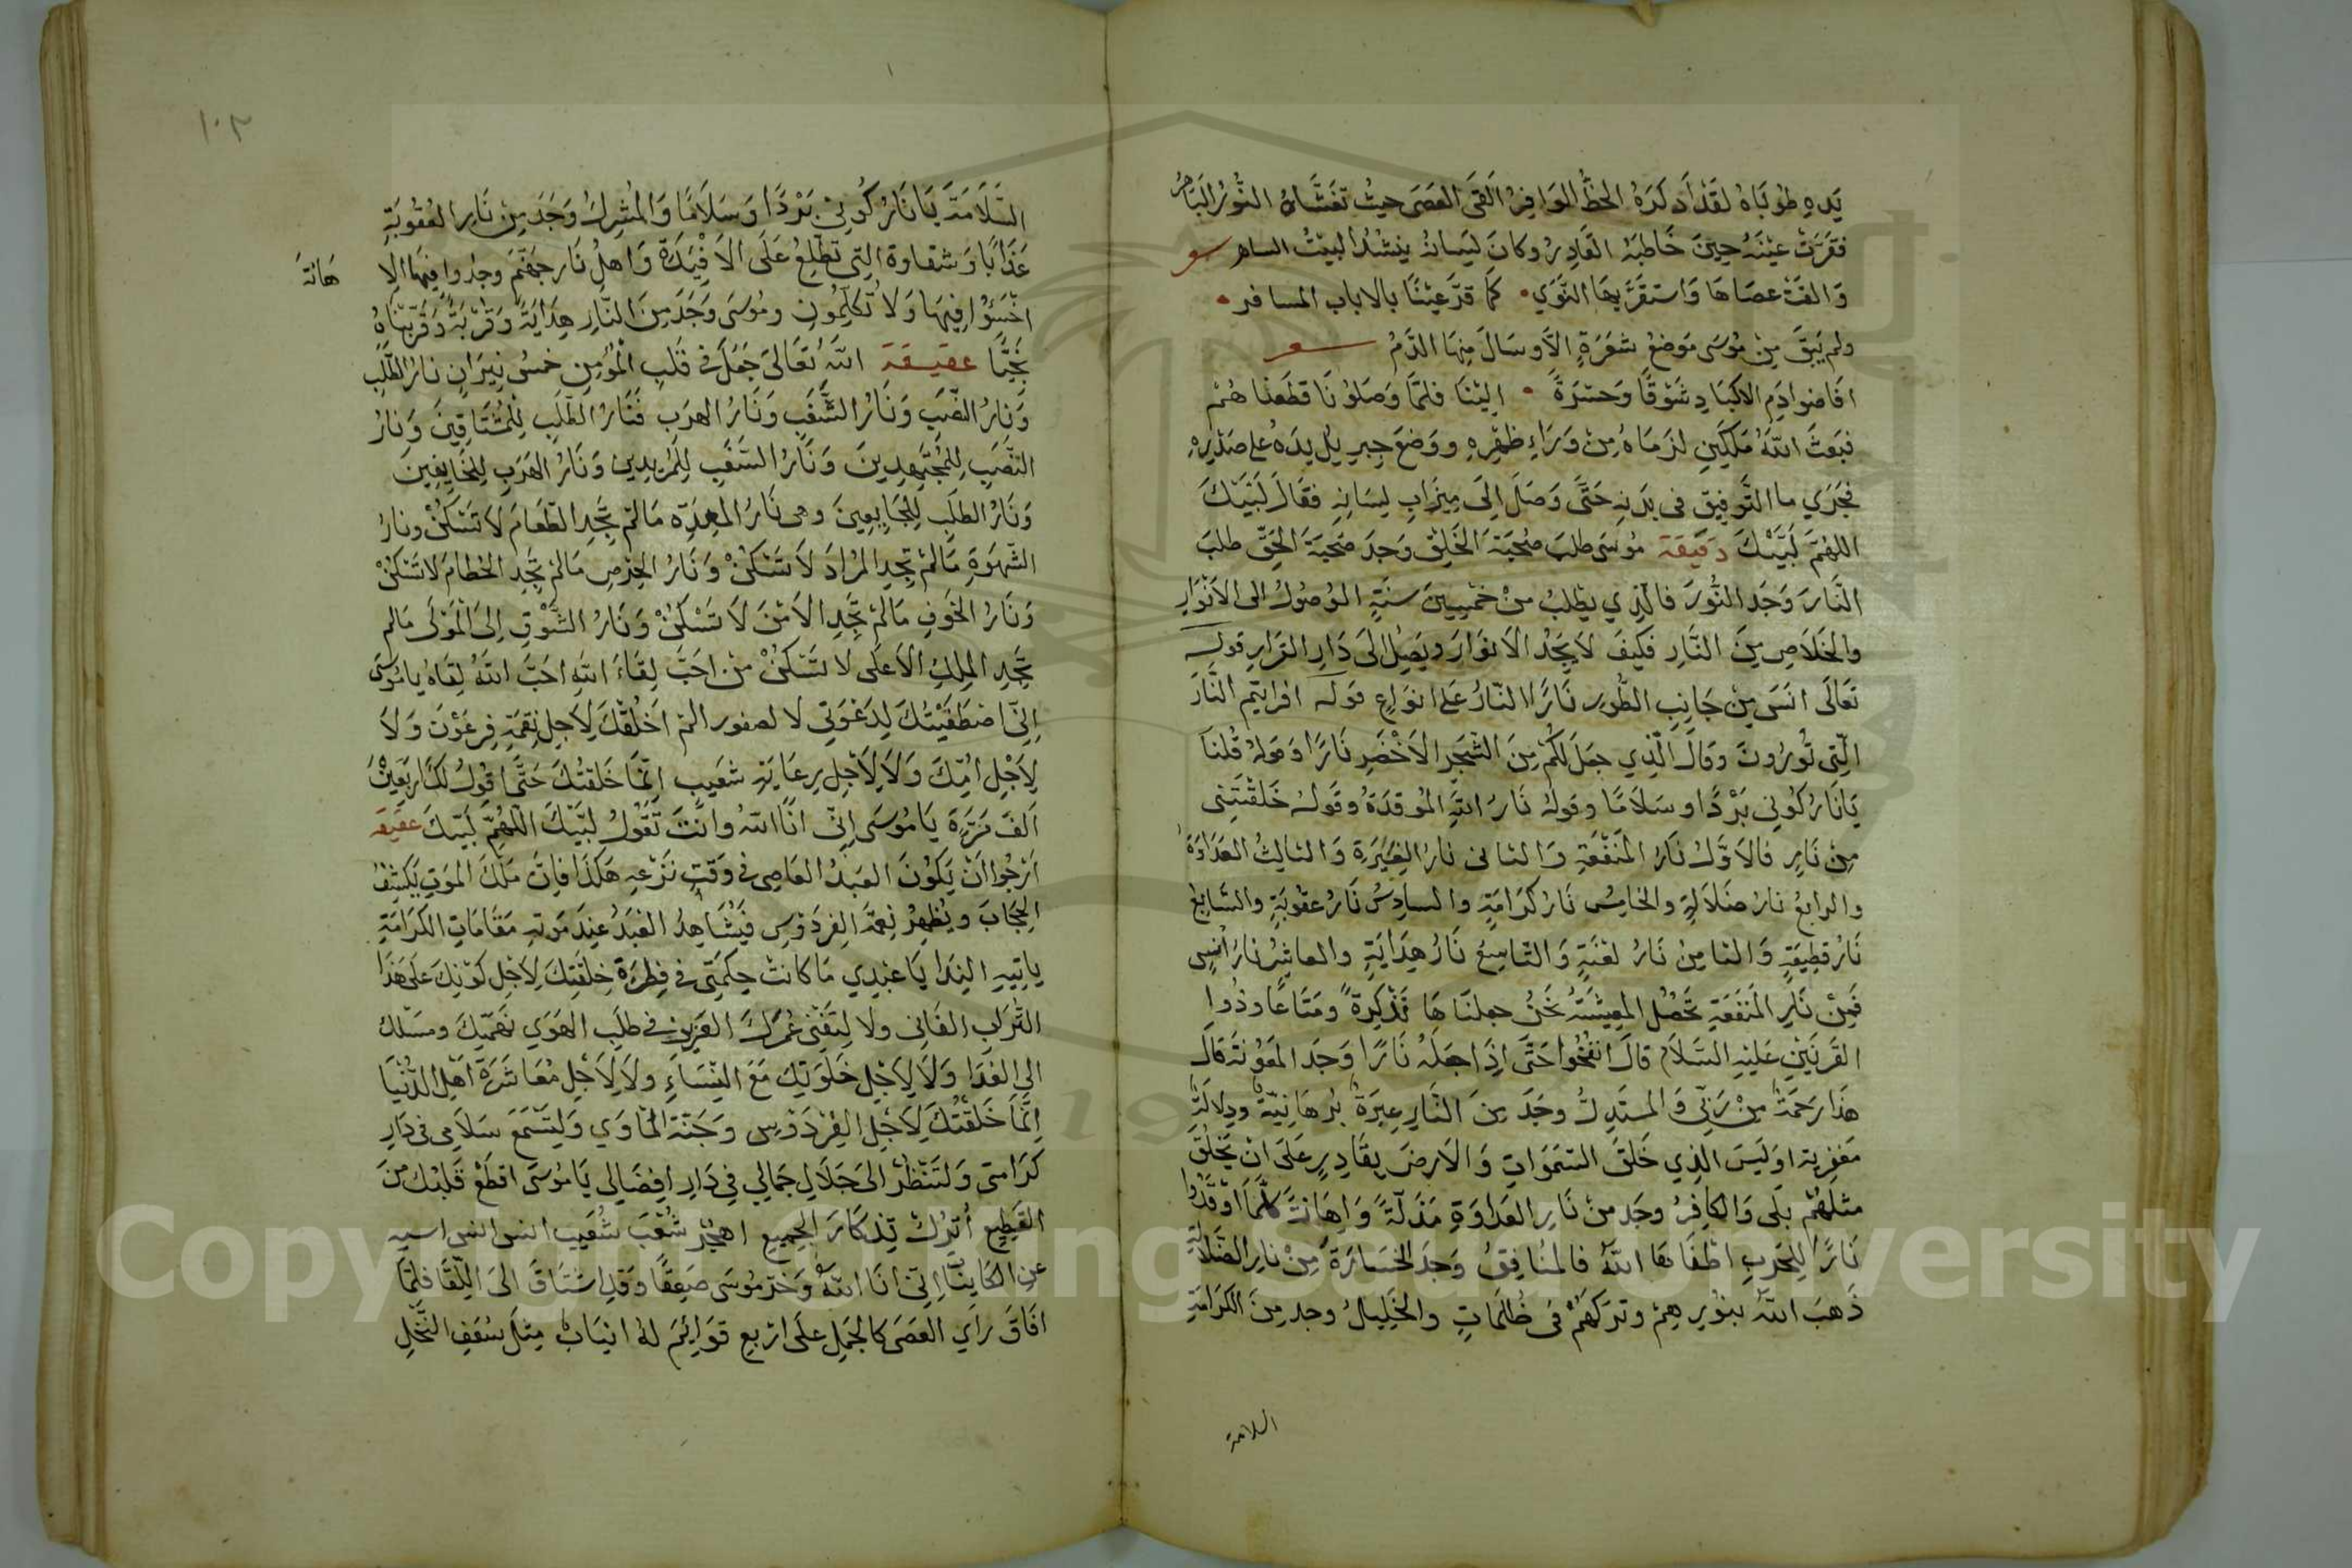 يَدِهِ طُوبَاهُ لَقَدْ أَدْرَكَهُ الحَظُّ الوَافِرُ أَلقَى العَصَى حيثُ تَغَشَّاهُ النُّورُ البَاهِرُ
فَقَرَّتْ عَيْنَهُ حِينَ خَاطَبَهُ القَادِرُ وكَانَ لِسَانُهُ يُنْشُدُ البَيْتُ الساهر شعر
وَالقَتْ عصَاهَا وَاستقَرَّ بِهَا النَّوَي • كَمَا قرَّ عيْنًا بالاياب المسافر •
ولم يَبْقَ مِنْ مُوسَى مَوضِعُ شَعْرَةٍ إلَّا وسَالَ مِنْهَا الدَّمُ شعر
افَاضوا دَمِ الاكبَادِ شَوْقًا وَحَسْرَةً • اليْنَا فلمَّا وَصَلُونَا قَطَعْنَاهُمْ
فبَعَثَ اللَّهُ مَلَكَينِ لزَمَاهُ مِنْ وَرَاءِ ظَهْرِهِ ووَضعَ جِبرِيلُ يدَهُ على صَدْرِهِ
فجَرَي ما التَّوفِيقِ في بدَنِهِ حَتَّى وَصَلَ إلَى مِيزَابِ لِسَانِهِ فقَالَ لَبَّيْكَ
اللهُمَّ لَبَّيْكَ دَقيقَة مُوسَى طلبَ صُحْبَةَ الخَلْقِ وَجدَ صُحْبَةَ الحَقِّ طلبَ
النَّارَ وَجَدَ النُّورَ فالَّذِي يطْلبُ مِنْ خَمْسِينَ سَنَةٍ الوُصُولُ الى الاَنْوَارِ
والخَلَاصِ مِنَ النَّارِ فَكَيفَ لَا يَجْدُ الاَنوَارَ ويَصِلُ الَى دَارِ القرَارِ قوله
تعَالَى انَسَ مِنْ جَانِبِ الطُّورِ نَارًا النَّارُ عَلَى انوَاعٍ قوله افرايتم النَّارَ
الَّتِي تُورُونَ وقَالَ الَّذِي جعَلَ لَكُمْ مِنَ الشَّجَرِ الاَخْضَرِ نَارًا وقولهُ قُلْنَا
يَا نَارُ كُونِي بَرْدًا وسَلَامًا وقولهُ نَارُ اللَّهِ المُوقدَةُ وقَولهُ خَلَقْتَنِي
مِنْ نَارٍ فالاَوَّلُ نَارُ المَنْفَعَةِ وَالثاني نارُ الغَيْرَةِ وَالثالِثُ العَدَاوَةُ
والرابعُ نارُ ضَلَالَةٍ والخامِسُ نَارُ كَرَامَةٍ والسادِسُ نَارُ عقُوبَةٍ والسَّابِعُ
نَارُ قَطِيعَةٍ وَالثامِنُ نَارُ لعْنَةٍ وَالتَّاسِعُ نَارُ هِدَايَةٍ والعاشِرُ نارُ أُنْسٍ
فَمِنْ نَارِ المَنفَعَةِ تَحْصُلُ المعِيشَةُ نَحْنُ جعلنَاهَا تَذْكِرَةً ومَتَاعًا وذُوا
القَرنَيْنِ عَليْهِ السَّلَام قالَ انفخُوا حَتَّى إذَا جعَلَهُ نَارًا وَجَدَ المَعُونَةَ قالَ
هَذَا رَحْمَةٌ مِنْ رَبِّي وَالمستَدِلُّ وجَدَ مِنَ النَّارِ عِبرَةٌ بُرهَانِيَّةٌ ودِلَالَةٌ
اوَلَيسَ الذِي خَلَقَ السَّمَوَاتِ وَالاَرضَ بِقَادِرٍ عَلَى انْ يَخْلُقَ
مثلَهُمْ بَلَى وَالكافِرُ وجَد مِنْ نَارِ العَدَاوَةِ مَذَلَّةً وَاِهَانَةً كلَّمَا اوْقَدُوا
نَارًا لِلْحَرْبِ اطْفَاهَا اللَّهُ فالمُنافِقُ وَجَدَ الخسَارَةَ مِنْ نارِ الضَّلَالَةِ
ذَهبَ اللَّهُ بنُورِهِمْ وتَرَكَهُمْ في ظُلمَاتٍ والخَلِيلُ وجد مِنَ الكَرَامَةِ
السلامة
١٠٢
السَّلَامَةَ يَا نَارُ كُونِي بَرْدًا وَسَلَامًا وَالمُشرِكُ وَجَدَ مِنْ نَارِ العُقُوبَةِ
عَذَابًا وَشقاوة الِتي تَطَّلِعُ عَلَى الاَفْئِدَةِ وَاهلُ نَارِ جهَنَّمَ وجدُوا فيهَا الاِ
هَانَةَ
اخْسَئُوا فِيهَا وَلَا تُكَلِّمُونِ ومُوسَى وَجَدَ مِنَ النَّارِ هِدَايَةً وَقُرْبَةً وَقَرَّبْنَاهُ
نَجِيًّا عقيقَة اللَّهُ تعَالَى جَعَلَ في قَلبِ المُؤمِنِ خَمسُ نِيرَانٍ نارُ الطَّلَبِ
وَنارُ النَّصَبِ وَنَارُ الشَّغَفِ وَنَارُ الهرَبِ فَنَارُ الطَّلَبِ لِلْمُشتَاقِينَ وَنارُ
النَّصَبِ لِلمُجْتَهِدِينَ وَنَارُ الشَّغَفِ لِلمُرِيدِينَ وَنَارُ الهَرَبِ لِلخَايِفِينَ
وَنَارُ الطلَبِ لِلجَايِعِينَ وهى نَارُ المعِدَةِ مَا لمْ تَجِدِ الطَّعَامَ لَا تَسْكنْ ونارُ
الشَّهْوَةِ مَا لمْ تَجِدِ المُرَادَ لَا تَسْكنْ وَنَارُ الحِرْصِ مَا لمْ تَجِدِ الحُطَامَ لَا تَسْكنْ
وَنَارُ الخَوفِ مَا لمْ تَجِدِ الاَمْنَ لَا تَسْكنْ وَنَارُ الشَّوْقِ إلَى المَوْلَى مَا لم
تَجِدِ المَلِكَ الاَعلَى لَا تَسْكنْ مَنْ احَبَّ لِقَاءَ اللَّهِ احَبَّ اللَّهُ لِقَاهُ يا مُوسَى
إنِّي اصْطَفَيْتُكَ لِدَعْوَتِي لا الم اخْلُقْكَ لِاَجلِ نِقْمَةِ فِرعَوْنَ وَلَا
لِاَجْلِ امِّكَ وَلَا لِاَجْلِ رِعَايَةِ شعَيبٍ انَّمَا خَلقْتُكَ حَتَّى اقُولُ لكَ اربَعِينَ
اَلفَ مَرَّةٍ يَا مُوسَى إنِّي انَا اللهُ وانْتَ تَقُولُ لبَّيْكَ اللَّهُمَّ لَبَّيكَ عقيقه
اَرْجُوا اَنْ يَكُونَ العَبْدُ العَاصِي في وَقْتِ نَزْعِهِ هَكَذَا فإنَّ مَلَكَ المَوتِ يَكشِفُ
الحِجَابَ ويُظهِرُ نِعمَ الفِردَوْسِ فَيُشَاهِدُ العَبْدُ عِندَ مَوتِهِ مَقَامَاتِ الكَرَامَةِ
يَاتِيهِ النِدَا يَا عَبْدِي مَا كَانتْ حِكْمَتِي في فِطْرَة خِلْقَتِكَ لِاَجْلِ كَوْنِكَ عَلَى هَذَا
التُّرَابِ الفَانِي ولَا لِتُفْنِي عُمْرَكَ العَزِيز في طَلَبِ الهَوَي
الى الغدَا وَلَا لِاَجْلِ خَلوَتِكَ مَعَ النِّسَاءِ ولَا لِاَجْلِ مُعَاشَرَةِ اَهْلِ الدُّنْيَا
اِنَّمَا خَلَقْتُكَ لِاَجْلِ الفِرْدَوْسِ وَجَنَّة المَاوَي وَلِتَسْمَعَ سَلَامِي في دَارِ
كَرَامتي وَلتَنْظُرْ الى جَلَالِ جَمالِي فِي دَارِ افضَالِي يَا مُوسَى اقطَعْ قَلْبَكَ مِنَ
القَطِيعِ أُترُكْ تِذكَارَ الجَمِيعِ اهْجُرْ شُعْبَ شُعَيب
عنِ الكَاينَاتِ إنِّي انَا اللَّهُ وَخَرَّ مُوسَى صَعِقًا وَقَدِ اشتَاقَ الَى اللِّقَا فلمَّا
افَاقَ رَاَي العَصَى كالجَمَلِ علَى اربعِ قوَائِمَ لهُ انيَابٌ مِثلَ سَعَفِ النَّخْلِ
Copyright © King Saud University